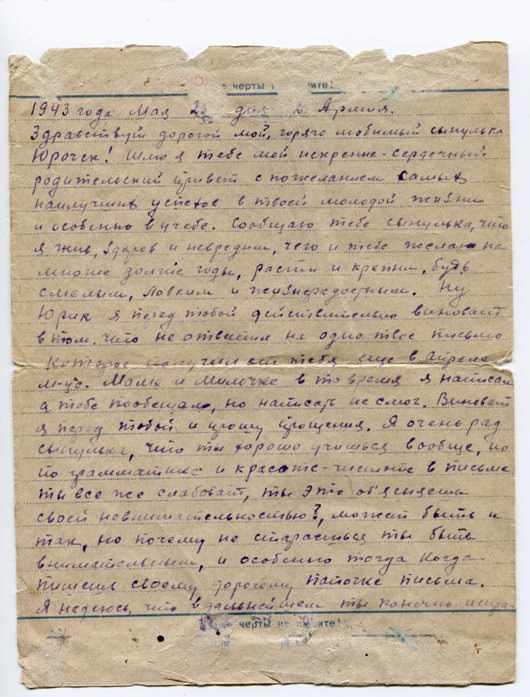 черты
1943 года Мая 23 дня Д. Армия.
Здравствуй дорогой мой, горячо любимый сынулька
Юрочек! Шлю я тебе мой искренне-сердечный
родительский привет с пожеланием самых
наилучших успехов в твоей молодой жизни
и особенно в учебе. Сообщаю тебе сынулька, что
я жив, здоров и невредим, чего и тебе желаю на
многие долгие годы, расти и крепни, будь
смелым, ловким и жизнерадостным. Ну
Юрик я перед тобой действительно виноват
в том, что не ответил на одно твое письмо
которое получил от тебя еще в апреле
м-це. Мамке и Милочке в то время я написал
а тебе пообещал, но написать не смог. Виноват
я перед тобый и прошу прощения. Я очень рад
сынулька, что ты хорошо учишься вообще, но
по грамматике и красоте-чистоте в письме
ты все же слабоват, ты это об'ясняеш
своей невнимательностью?, может быть и
так, но почему не стараешься ты быть
внимательным, и особенно тогда когда
пишешь своему дорогому папочке письма.
Я надеюсь, что в дальнейшем ты конечно испра-
черты не пишите!